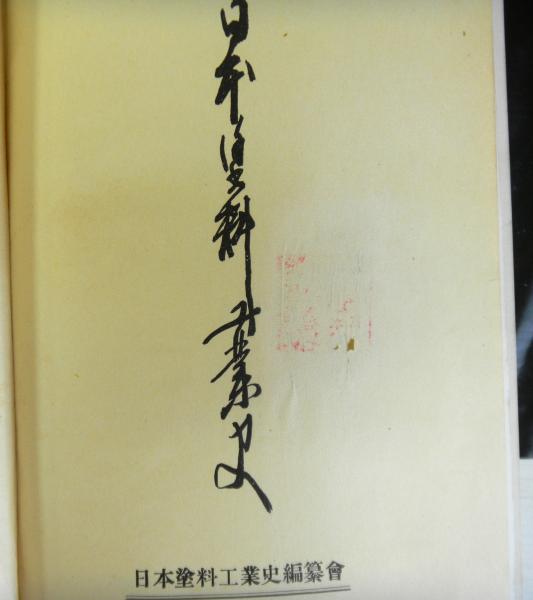 日本塗料工業史
日本塗料工業史編纂會